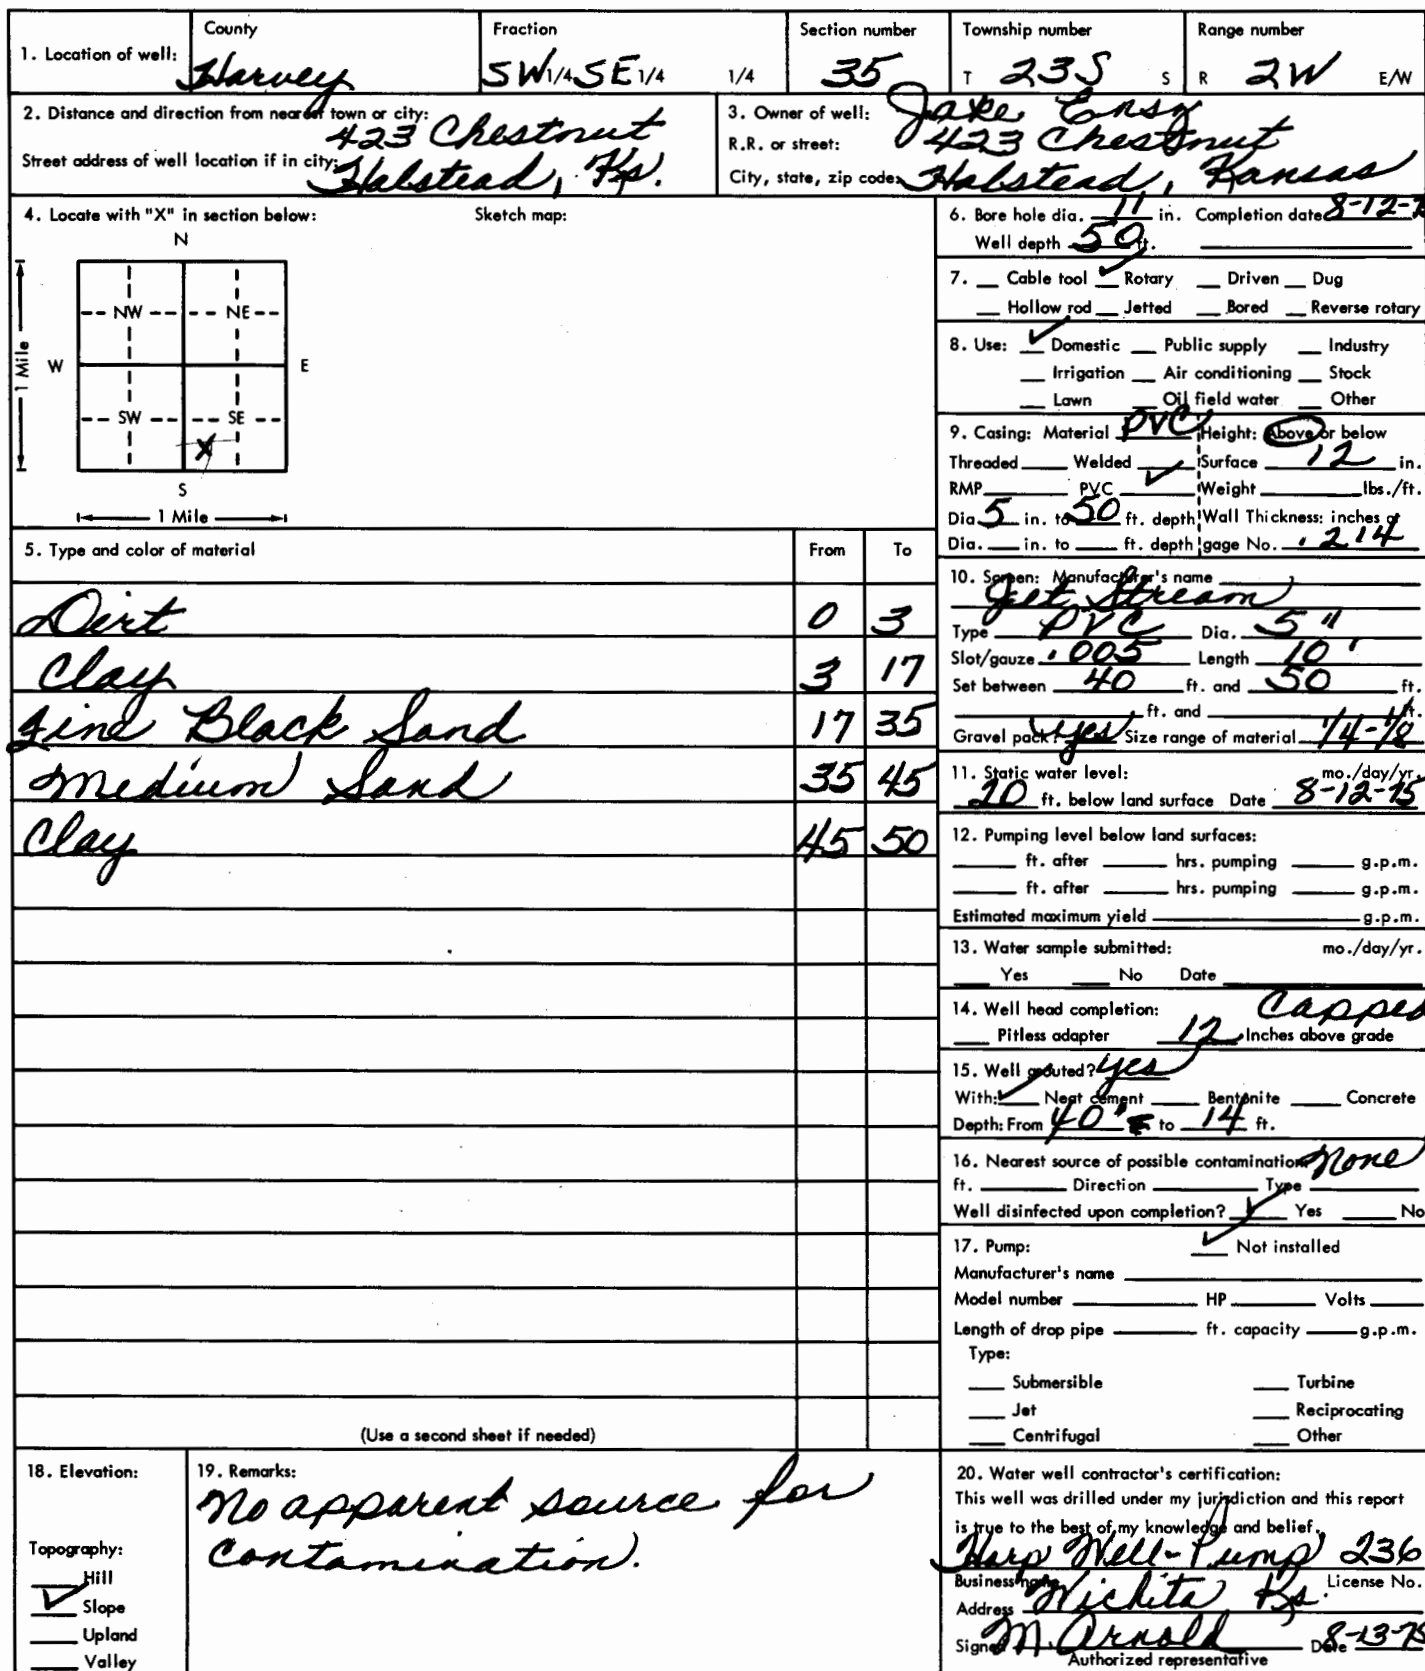 1. Location of well: County Harvey Fraction SW 1/4 SE 1/4 1/4 Section number 35 Township number T 23S S Range number R 2W E/W
2. Distance and direction from nearest town or city: 423 Chestnut
Street address of well location if in city: Halstead, Ks.
3. Owner of well: Jake
R.R. or street: 423 Chestnut
City, state, zip code: Halstead, Kansas
4. Locate with "X" in section below: Sketch map:
N
NW NE
W E
1 Mile
SW SE
X
S
1 Mile
5. Type and color of material From To
Dirt 0 3
Clay 3 17
Fine Black Sand 17 35
Medium Sand 35 45
Clay 45 50
(Use a second sheet if needed)
6. Bore hole dia. 11 in. Completion date 8-12-7
Well depth 50 ft.
7. Cable tool ✓ Rotary Driven Dug
Hollow rod Jetted Bored Reverse rotary
8. Use: ✓ Domestic Public supply Industry
Irrigation Air conditioning Stock
Lawn Oil field water Other
9. Casing: Material PVC Height: Above or below
Threaded Welded Surface 12 in.
RMP PVC ✓ Weight lbs./ft.
Dia. 5 in. to 50 ft. depth Wall Thickness: inches or
Dia. in. to ft. depth gage No. .214
10. Screen: Manufacturer's name
Jet Stream
Type PVC Dia. 5"
Slot/gauze .005 Length 10'
Set between 40 ft. and 50 ft.
ft. and ft.
Gravel pack? yes Size range of material 1/4-1/8
11. Static water level: mo./day/yr.
20 ft. below land surface Date 8-12-75
12. Pumping level below land surfaces:
ft. after hrs. pumping g.p.m.
ft. after hrs. pumping g.p.m.
Estimated maximum yield g.p.m.
13. Water sample submitted: mo./day/yr.
Yes No Date
14. Well head completion: Capped
Pitless adapter 12 Inches above grade
15. Well grouted? yes
With: ✓ Neat cement Bentonite Concrete
Depth: From 40' to 14 ft.
16. Nearest source of possible contamination: None
ft. Direction Type
Well disinfected upon completion? ✓ Yes No
17. Pump: ✓ Not installed
Manufacturer's name
Model number HP Volts
Length of drop pipe ft. capacity g.p.m.
Type:
Submersible Turbine
Jet Reciprocating
Centrifugal Other
18. Elevation:
Topography:
Hill
✓ Slope
Upland
Valley
19. Remarks:
No apparent source for
contamination.
20. Water well contractor's certification:
This well was drilled under my jurisdiction and this report
is true to the best of my knowledge and belief.
Harp Well-Pump 236
Business name License No.
Address Wichita Ks.
Signed M. Arnold Date 8-13-75
Authorized representative